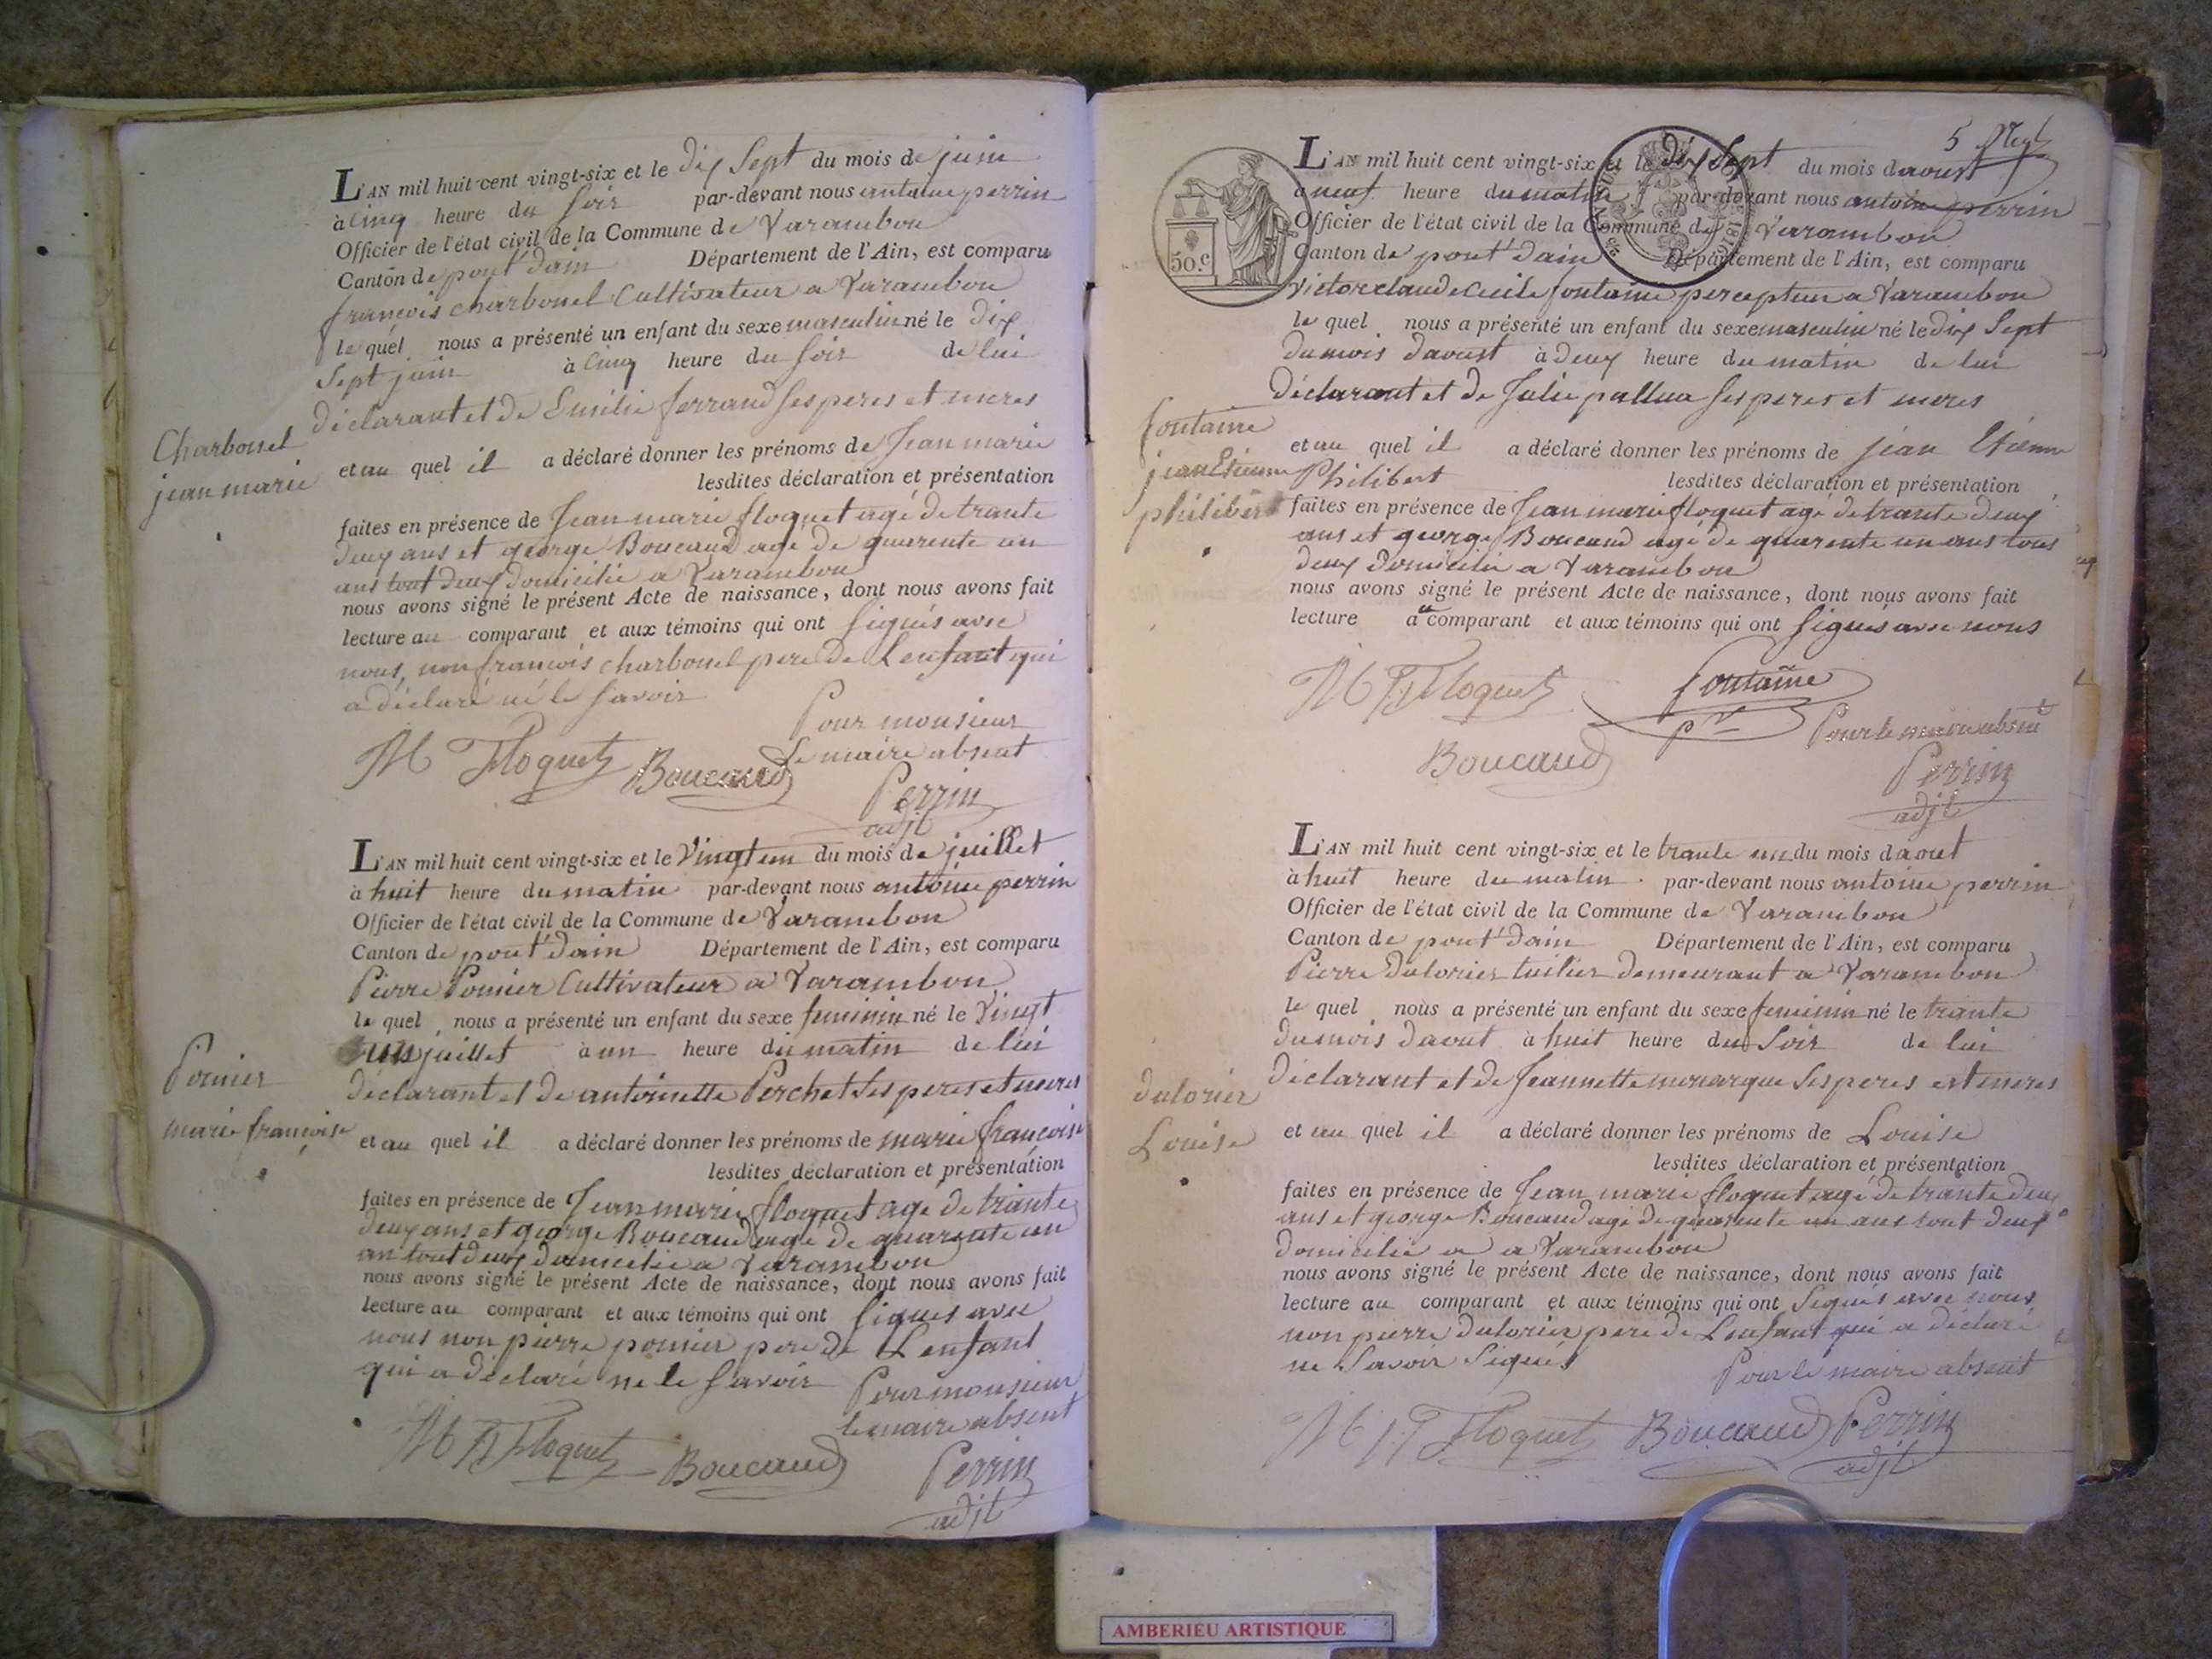 L'AN mil huit cent vingt-six et le dix Sept du mois de juin
à cinq heure du soir par-devant nous antoine perrin
Officier de l'état civil de la Commune de Varambon
Canton de pont d'ain Département de l'Ain, est comparu
françois charbonel Cultivateur a Varambon
le quel nous a présenté un enfant du sexe masculin né le dix
Sept juin à cinq heure du soir de lui
déclarant et de Emilie ferrand ses peres et meres
Charbonel
jean marie
et au quel il a déclaré donner les prénoms de Jean marie
lesdites déclaration et présentation
faites en présence de Jean marie floquet agé de trante
deux ans et george Boucaud agé de quarente un
ans tout deux domicilié a Varambon
nous avons signé le présent Acte de naissance, dont nous avons fait
lecture au comparant et aux témoins qui ont signés avec
nous, non françois charbonel pere de L'enfant qui
a déclaré né le savoir
Pour monsieur
Le maire absent
M Floquet Boucaud
Perrin
adjt
L'AN mil huit cent vingt-six et le Vingt un du mois de juillet
à huit heure du matin par-devant nous antoine perrin
Officier de l'état civil de la Commune de Varambon
Canton de pont d'ain Département de l'Ain, est comparu
Pierre Ponier Cultivateur a Varambon
le quel nous a présenté un enfant du sexe feminin né le Vingt
un juillet à un heure du matin de lui
déclarant et de antoinette Perchet ses peres et meres
Ponier
marie françoise
et au quel il a déclaré donner les prénoms de marie françoise
lesdites déclaration et présentation
faites en présence de Jean marie floquet agé de trante
deux ans et george Boucaud agé de quarente un
an tout deux domicilié a Varambon
nous avons signé le présent Acte de naissance, dont nous avons fait
lecture au comparant et aux témoins qui ont signés avec
nous non pierre ponier pere de L'enfant
qui a déclaré ne le savoir
Pour monsieur
le maire absent
M Floquet Boucaud
Perrin
adjt
5
50.c
L'AN mil huit cent vingt-six et le dix Sept du mois d'avoust
à neuf heure du matin par-devant nous antoine perrin
Officier de l'état civil de la Commune de Varambon
Canton de pont d'ain Département de l'Ain, est comparu
Victor claude Cecile fontaine percepteur a Varambon
le quel nous a présenté un enfant du sexe masculin né le dix Sept
du mois d'avoust à deux heure du matin de lui
déclarant et de Julie pallua ses peres et meres
fontaine
jean Etienne
philibert
et au quel il a déclaré donner les prénoms de jean Etienne
Philibert lesdites déclaration et présentation
faites en présence de Jean marie floquet agé de trante deux
ans et george Boucaud agé de quarente un ans tous
deux domicilié a Varambon
nous avons signé le présent Acte de naissance, dont nous avons fait
lecture au comparant et aux témoins qui ont signés avec nous
M Floquet fontaine
pr
Pour le maire absent
Boucaud
Perrin
adjt
L'AN mil huit cent vingt-six et le trante un du mois d'aout
à huit heure du matin par-devant nous antoine perrin
Officier de l'état civil de la Commune de Varambon
Canton de pont d'ain Département de l'Ain, est comparu
Pierre dulorier tuilier demeurant a Varambon
le quel nous a présenté un enfant du sexe feminin né le trante
du mois d'aout à huit heure du soir de lui
déclarant et de Jeannette monarque ses peres et meres
dulorier
Louise
et au quel il a déclaré donner les prénoms de Louise
lesdites déclaration et présentation
faites en présence de Jean marie floquet agé de trante deux
ans et george Boucaud agé de quarente un ans tout deux
domicilié a a Varambon
nous avons signé le présent Acte de naissance, dont nous avons fait
lecture au comparant et aux témoins qui ont signés avec nous
non pierre dulorier pere de L'enfant qui a déclaré
ne savoir signés
Pour le maire absent
M Floquet Boucaud Perrin
adjt
AMBERIEU ARTISTIQUE